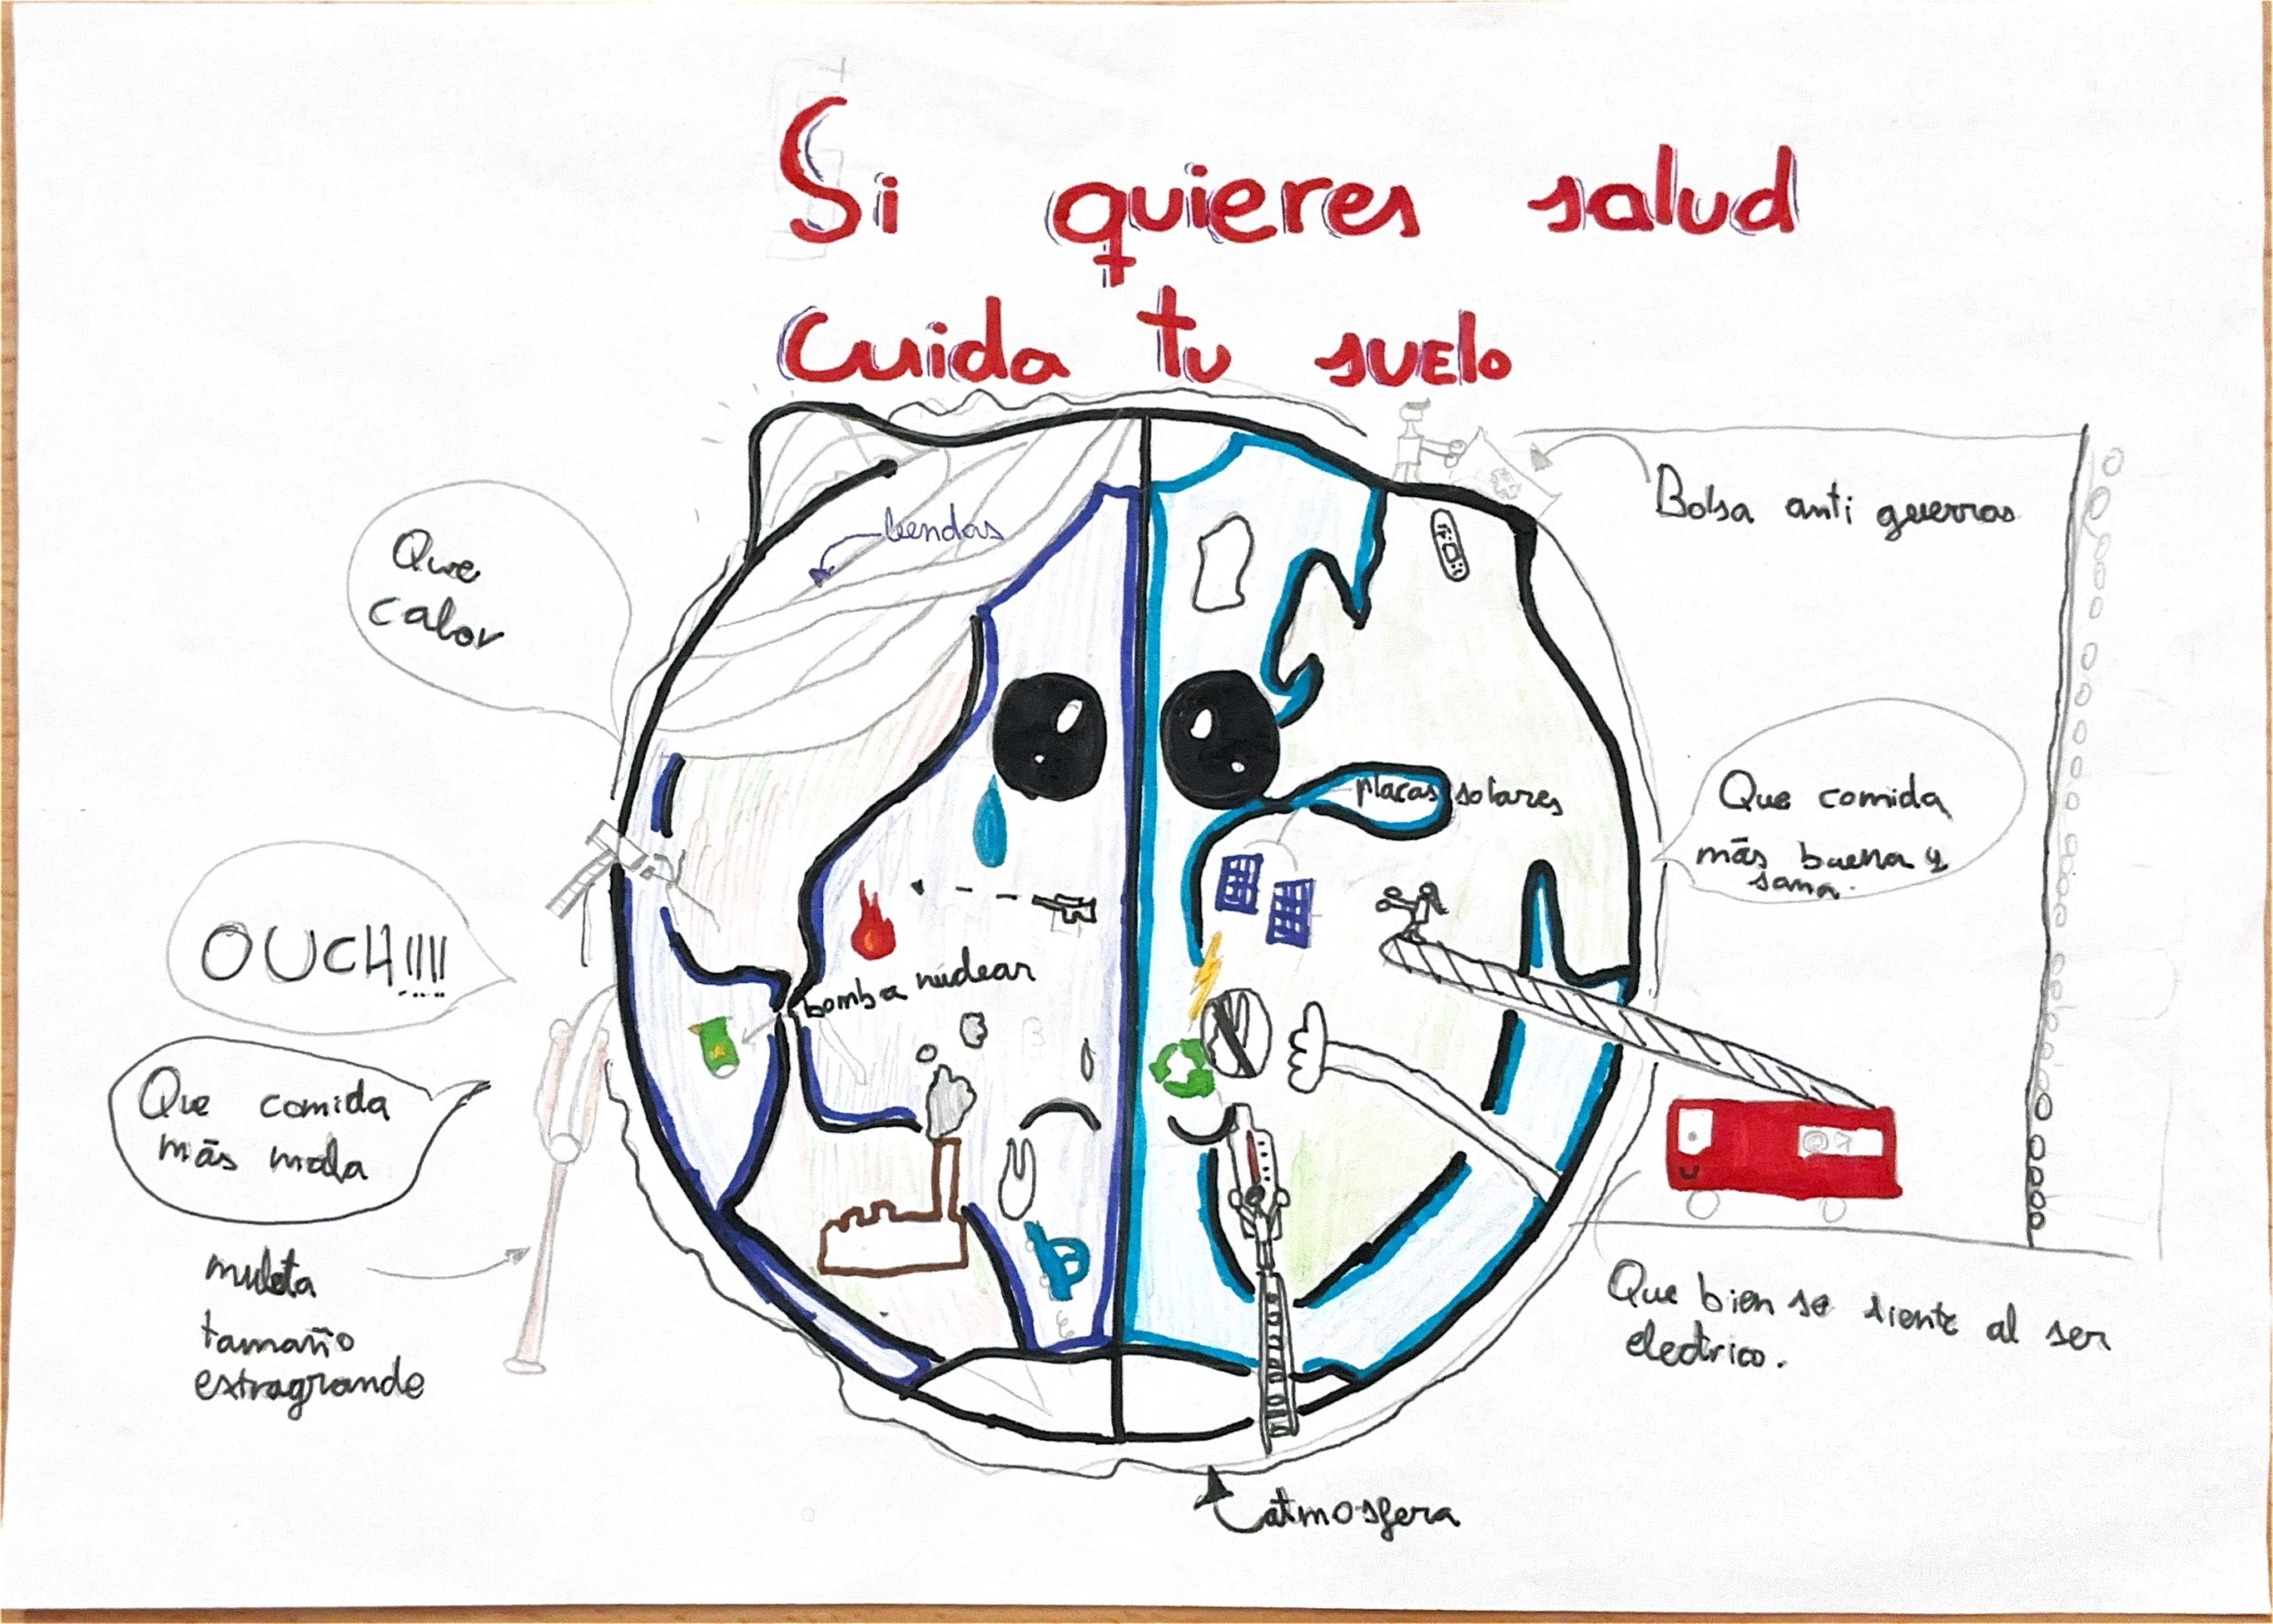 Si quieres salud
cuida tu suelo
Bolsa anti guerras
Que
calor
bendas
Que comida
más buena y
sana.
placas solares
OUCH!!!!
bomba nuclear
Que comida
más mala
muleta
tamaño
extragrande
Que bien se siente al ser
electrico.
atmosfera